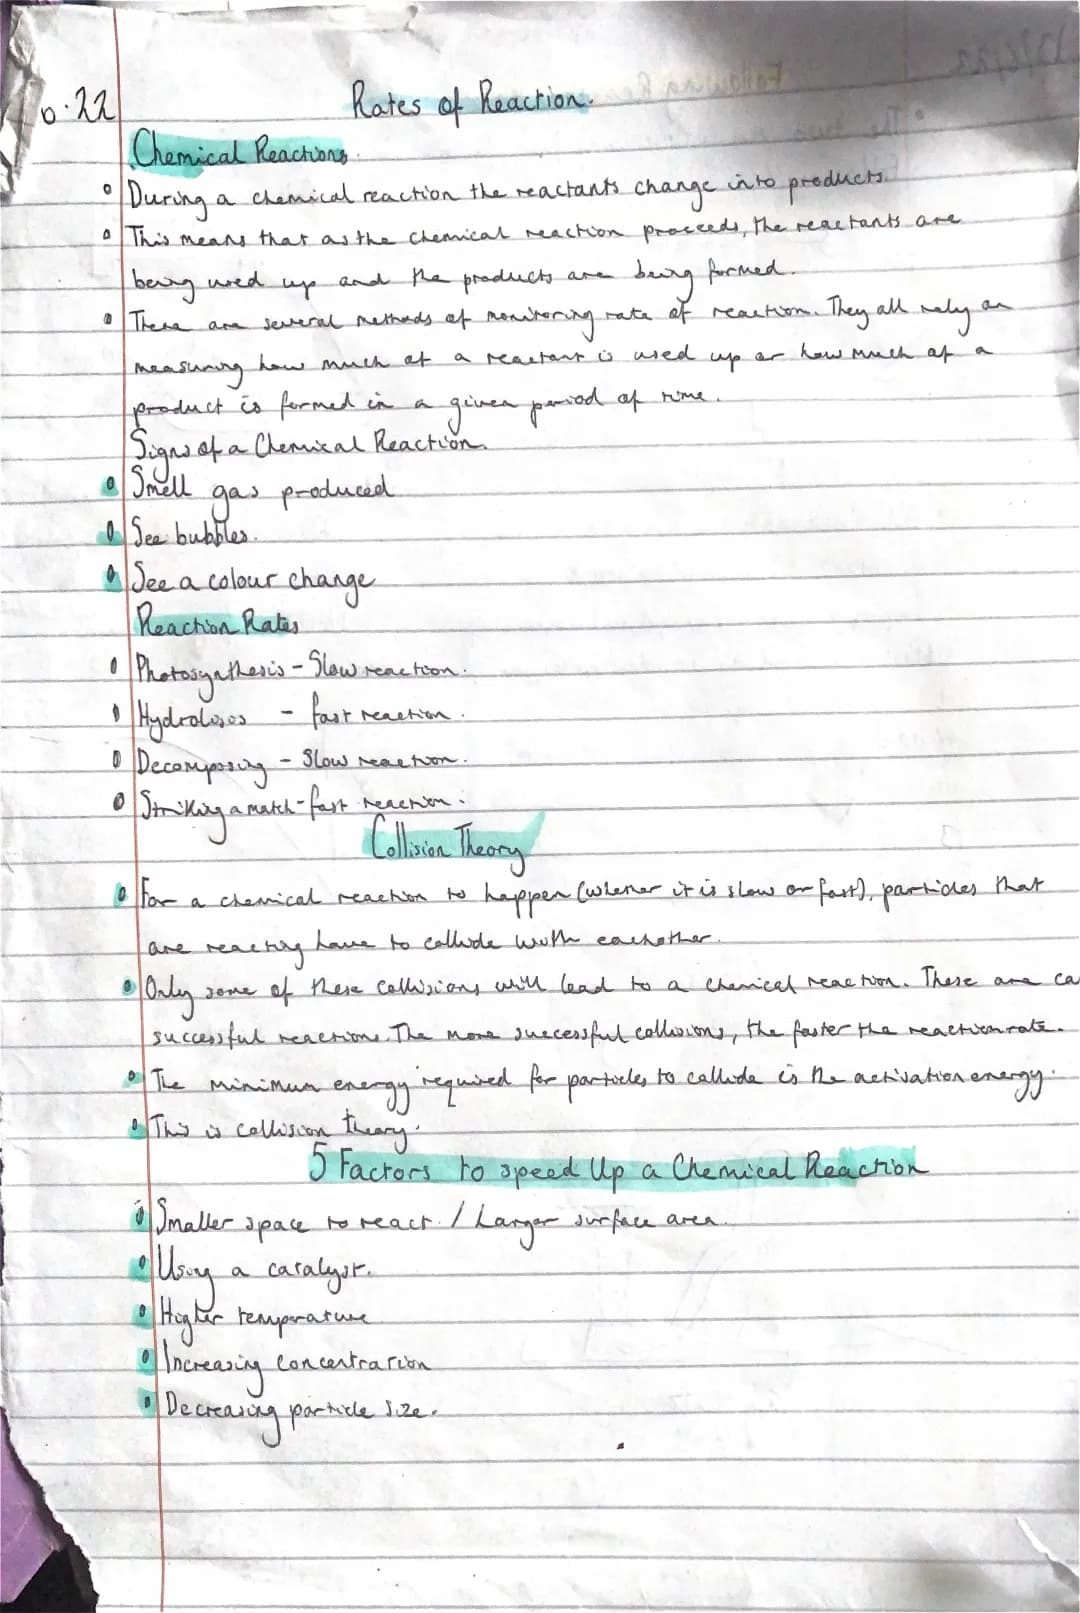 6.22
Rates of Reaction.
Chemical Reactions.
During a chemical reaction the reactants change into products.
This means that as the chemical reaction proceeds, the reactants are
being used up and the products are being formed.
There are several methods of monitoring rate of reaction. They all rely on
measuring how much of a reactant is used up or how much of a
product is formed in a given period of time.
Signs of a Chemical Reaction.
Smell gas produced
See bubbles.
See a colour change
Reaction Rates
Photosynthesis - Slow reaction.
- fast reaction.
Decomposing - Slow reaction.
Striking a match - fast reaction.
Collision Theory
For a chemical reaction to happen (wherer it is slow or fast), particles that
are reacting have to collide with eachother.
Only some of these collisions will lead to a chemical reaction. These are ca
successful reactions. The more successful collisions, the faster the reaction rate.
The minimum energy required for particles to collide is the activation energy.
This is collision theory.
5 Factors to speed Up a Chemical Reaction
Smaller space to react. / Larger surface area.
Using a catalyst.
Higher temprature
Increasing Concentration
Decreasing particle size.